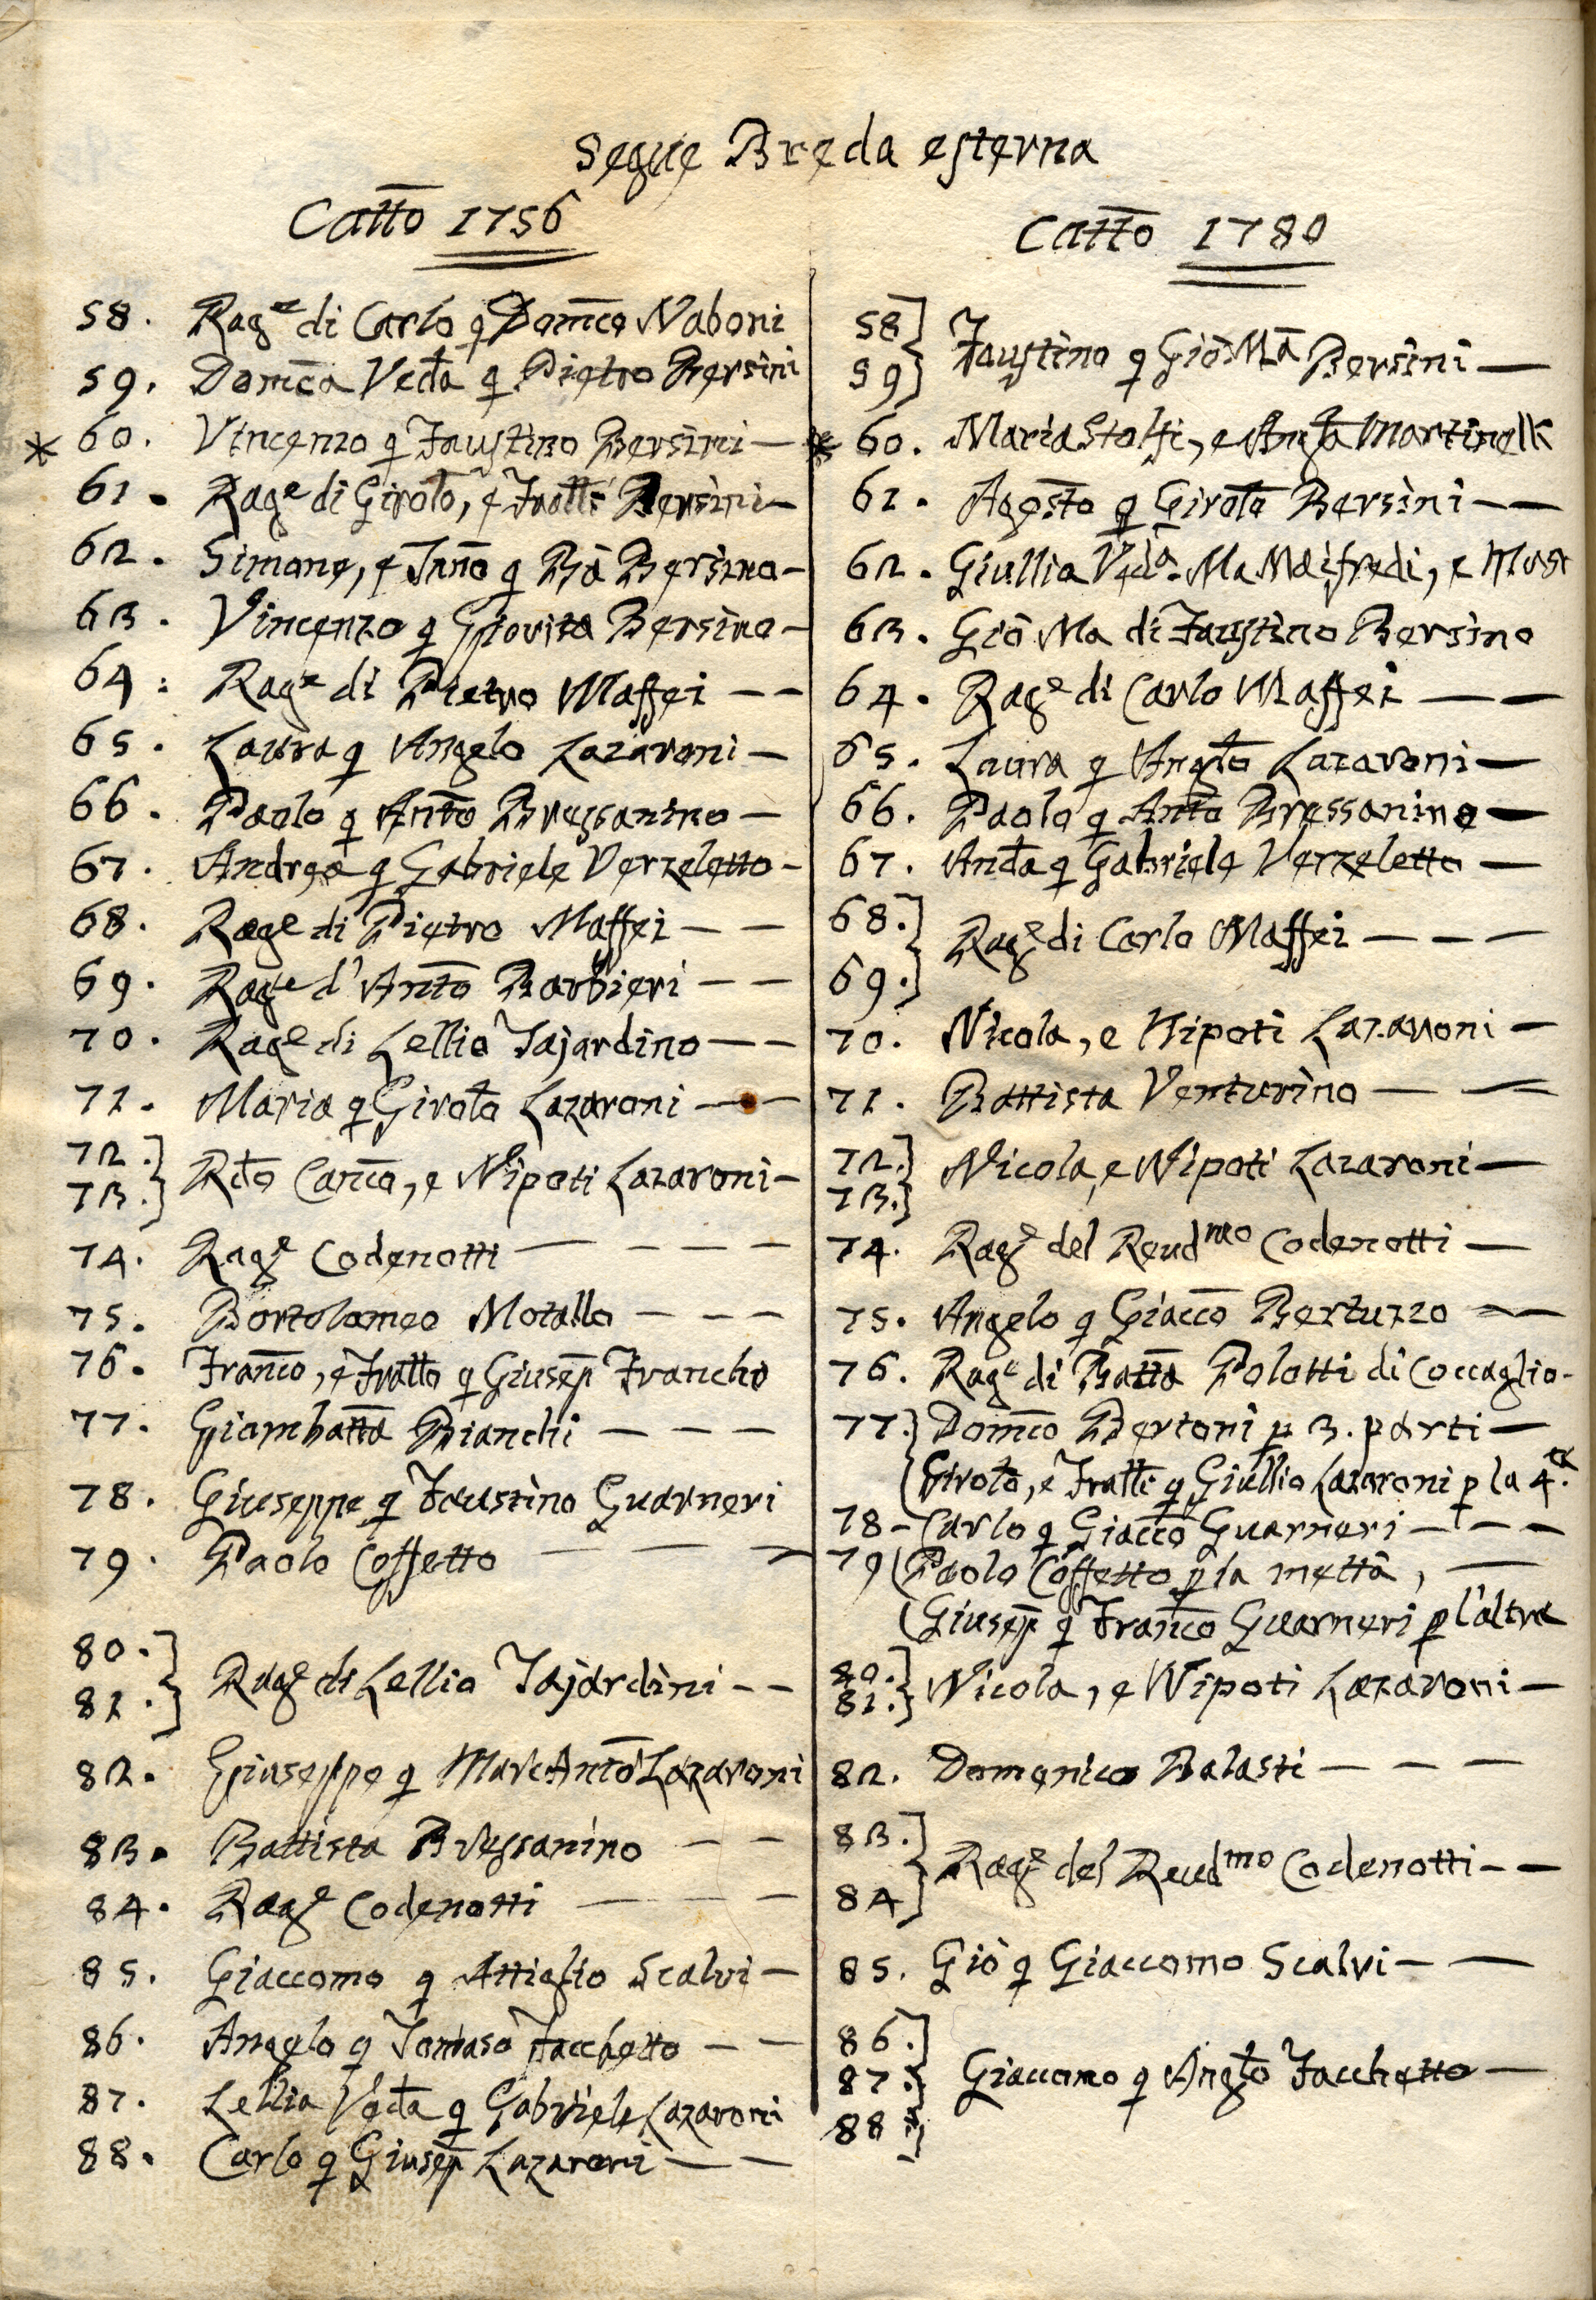 Segue Breda esterna
Cattõ 1756
58. Rag.e di Carlo q Domco Naboni
59. Domca Veda q Pietro Bersini
* 60. Vincenzo q Faustino Bersini —
61. Rag.e di Girolo, e Fratti Bersini —
62. Simone, e Inno q Bã Bersino —
63. Vincenzo q Giovita Bersino —
64. Rag.e di Pietro Maffei — —
65. Laura q Angelo Lazaroni —
66. Paolo q Anto Bressanino —
67. Andrea q Gabriele Verzeletto —
68. Rag.e di Pietro Maffei — —
69. Rag.e d'Anto Barbieri — —
70. Rag.e di Lellio Tajardino — —
71. Maria q Girolo Lazaroni — —
72.]
73.] Rdo Canco, e Nipoti Lazaroni —
74. Rag.e Codenotti — — — —
75. Bortolomeo Motalla — — —
76. Franco, e Fratto q Giusep Francho
77. Giambatta Bianchi — — —
78. Giuseppe q Faustino Guarneri
79. Paolo Coffetto — — —
80.]
81.] Rag.e di Lellio Tajardini — —
82. Giuseppe q MarcAnto Lazaroni
83. Battista Bressanino — —
84. Rag.e Codenotti — — —
85. Giaccomo q Attiglio Scalvi —
86. Angelo q Tomaso Facchetto — —
87. Lellia Veda q Gabriele Lazaroni
88. Carlo q Giusep Lazaroni — —
Cattõ 1780
58]
59] Faustino q Giò Mã Bersini —
* 60. Maria Stolfi, e Angla Martinelli
61. Agosto q Girolo Bersini — —
62. Giullia Veda. Ma Maifredi, e
63. Giò Ma di Faustino Bersino
64. Rag.e di Carlo Maffei — —
65. Laura q Anglo Lazaroni —
66. Paolo q Anto Bressanino —
67. Anda q Gabriele Verzeletto —
68.]
69.] Rag.e di Carlo Maffei — — —
70. Nicola, e Nipoti Lazaroni —
71. Battista Venturino — —
72.]
73.] Nicola, e Nipoti Lazaroni —
74. Rag.e del Reudmo Codenotti —
75. Angelo q Giacco Bertuzzo — —
76. Rag.e di Batta Polotti di Coccaglio —
77.] Domco Bertoni p 3. parti —
(Girolo, e Fratti q Giullio Lazaroni p la 4.a
78 — Carlo q Giacco Guarneri — — —
79 (Paolo Coffetto p la mettà, —
(Giusep q Franco Guarneri p l'altra
80.]
81.] Nicola, e Nipoti Lazaroni —
82. Domenico Balasti — — —
83.]
84] Rag.e del Reudmo Codenotti — —
85. Giò q Giaccomo Scalvi — —
86.]
87.] Giaccomo q Anglo Facchetto —
88.]